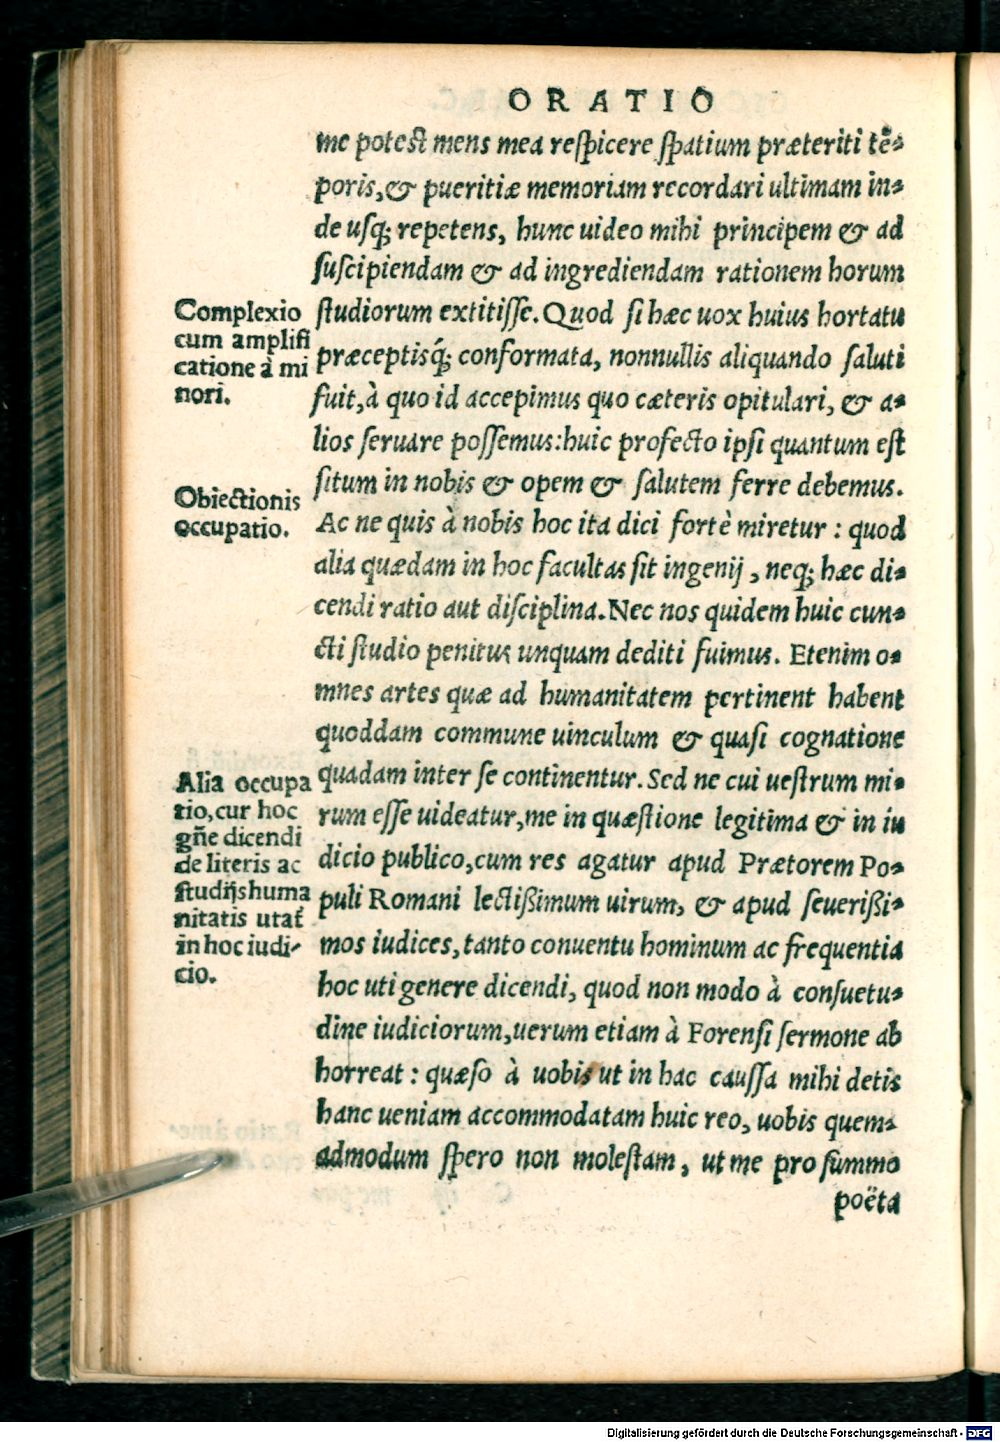 ORATIO
me potest mens mea respicere spatium præteriti tē-
poris, & pueritiæ memoriam recordari ultimam in-
de usq; repetens, hunc uideo mihi principem & ad
suscipiendam & ad ingrediendam rationem horum
studiorum extitisse. Quod si hæc uox huius hortatu
præceptisq́; conformata, nonnullis aliquando saluti
fuit, à quo id accepimus quo cæteris opitulari, & a-
lios seruare possemus: huic profecto ipsi quantum est
situm in nobis & opem & salutem ferre debemus.
Ac ne quis à nobis hoc ita dici fortè miretur: quod
alia quædam in hoc facultas sit ingenij, neq; hæc di-
cendi ratio aut disciplina. Nec nos quidem huic cun-
cti studio penitus unquam dediti fuimus. Etenim o-
mnes artes quæ ad humanitatem pertinent habent
quoddam commune uinculum & quasi cognatione
quadam inter se continentur. Sed ne cui uestrum mi-
rum esse uideatur, me in quæstione legitima & in iu
dicio publico, cum res agatur apud Prætorem Po-
puli Romani lectißimum uirum, & apud seuerißi-
mos iudices, tanto conuentu hominum ac frequentia
hoc uti genere dicendi, quod non modo à consuetu-
dine iudiciorum, uerum etiam à Forensi sermone ab
horreat: quæso à uobis ut in hac caussa mihi detis
hanc ueniam accommodatam huic reo, uobis quem-
admodum spero non molestam, ut me pro summo
poëta
Complexio
cum amplifi
catione à mi
nori.
Obiectionis
occupatio.
Alia occupa
tio, cur hoc
gñe dicendi
de literis ac
studijs huma
nitatis utať
in hoc iudi-
cio.
Digitalisierung gefördert durch die Deutsche Forschungsgemeinschaft - DFG